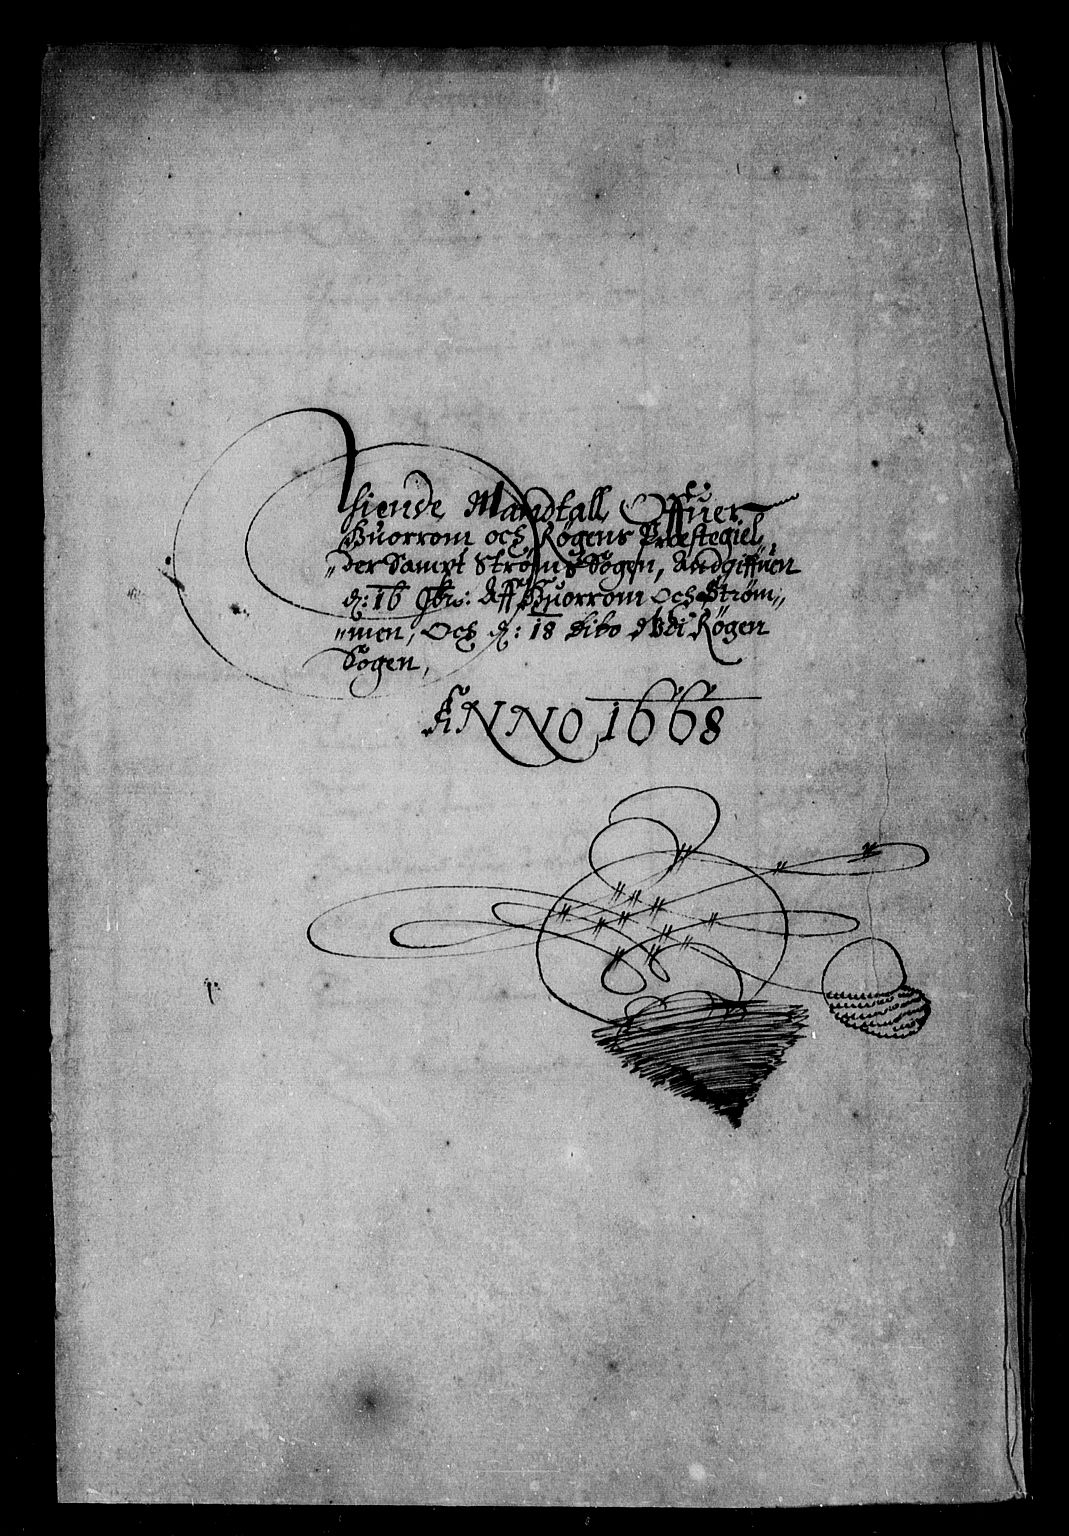 Tiende Mandtall Offuer
Buorrom och Røgens Præstegiel„
„der Sampt Strøms Sogen, Andgiffuen
d: 16 9br: Aff Buorrom och Strøm„
„men, Och d: 18 dito Vdi Røgen
Sogen,
ANNO 1668